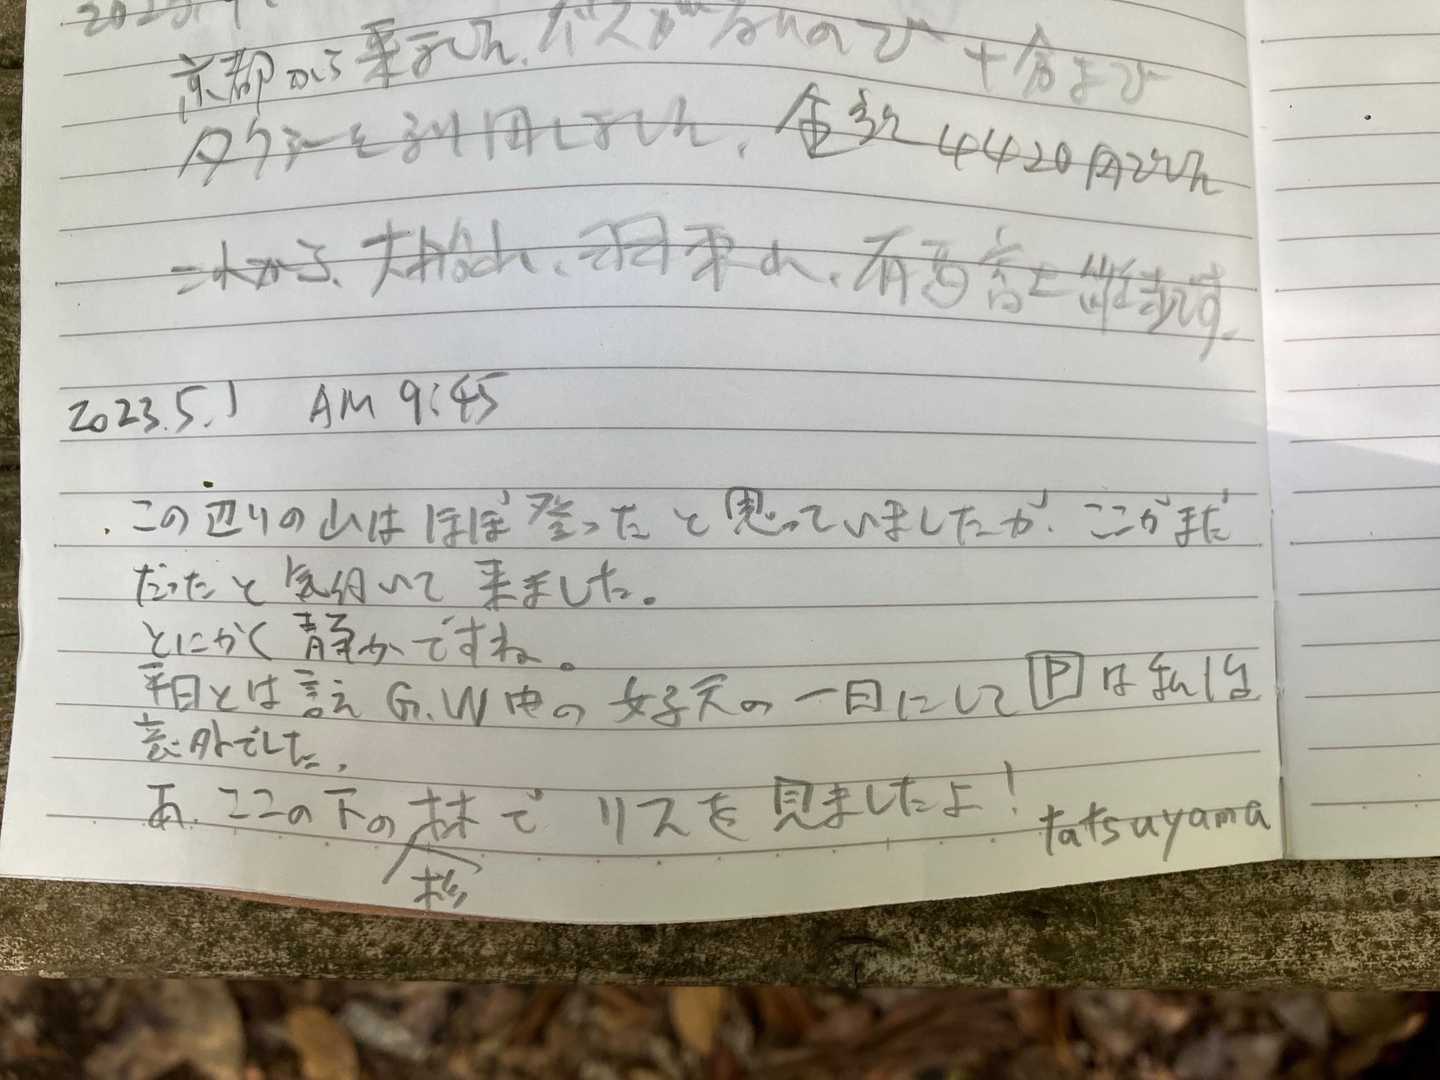 京都から来ました。バスがないので十倉まで
タクシーを利用しました。金額4420円でした
これから、大船山、羽束山、有馬富士と縦走です。
2023.5.1 AM 9:45
この辺りの山はほぼ登ったと思っていましたが、ここがまだ
だったと気付いて来ました。
とにかく静かですね。
平日とは言え G.W中の好天の一日にして Pは私1台
意外でした。
あ、ここの下の林でリスを見ましたよ!
杉
tatsuyama